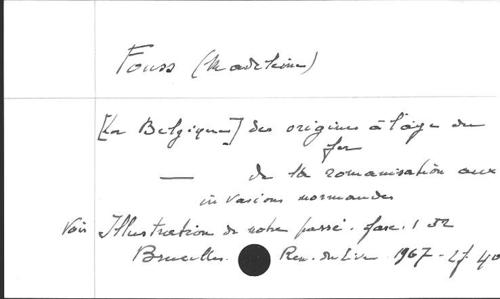 Fouss (Madeleine)
[La Belgique] des origines à l'âge du
fer
— de la romanisation aux
invasions normandes
Voir Illustration de notre passé. fasc. 1
Bruxelles. Ren. du Livre 1967 - 27. 40